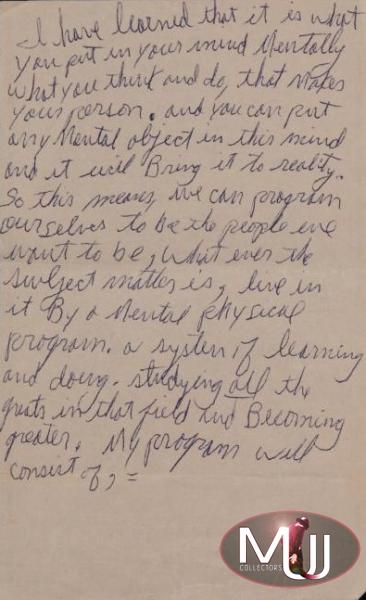 I have learned that it is what
you put in your mind Mentally
what you think and do, that makes
your person. and you can put
any Mental object in this mind
and it will Bring it to reality.
So this means we can program
ourselves to be the people we
want to be, what ever the
subject matter is, live in
it By a Mental physical
program. a system of learning
and doing. studying all the
greats in that field and Becoming
greater. My program will
consist of, =
MJJ
COLLECTORS